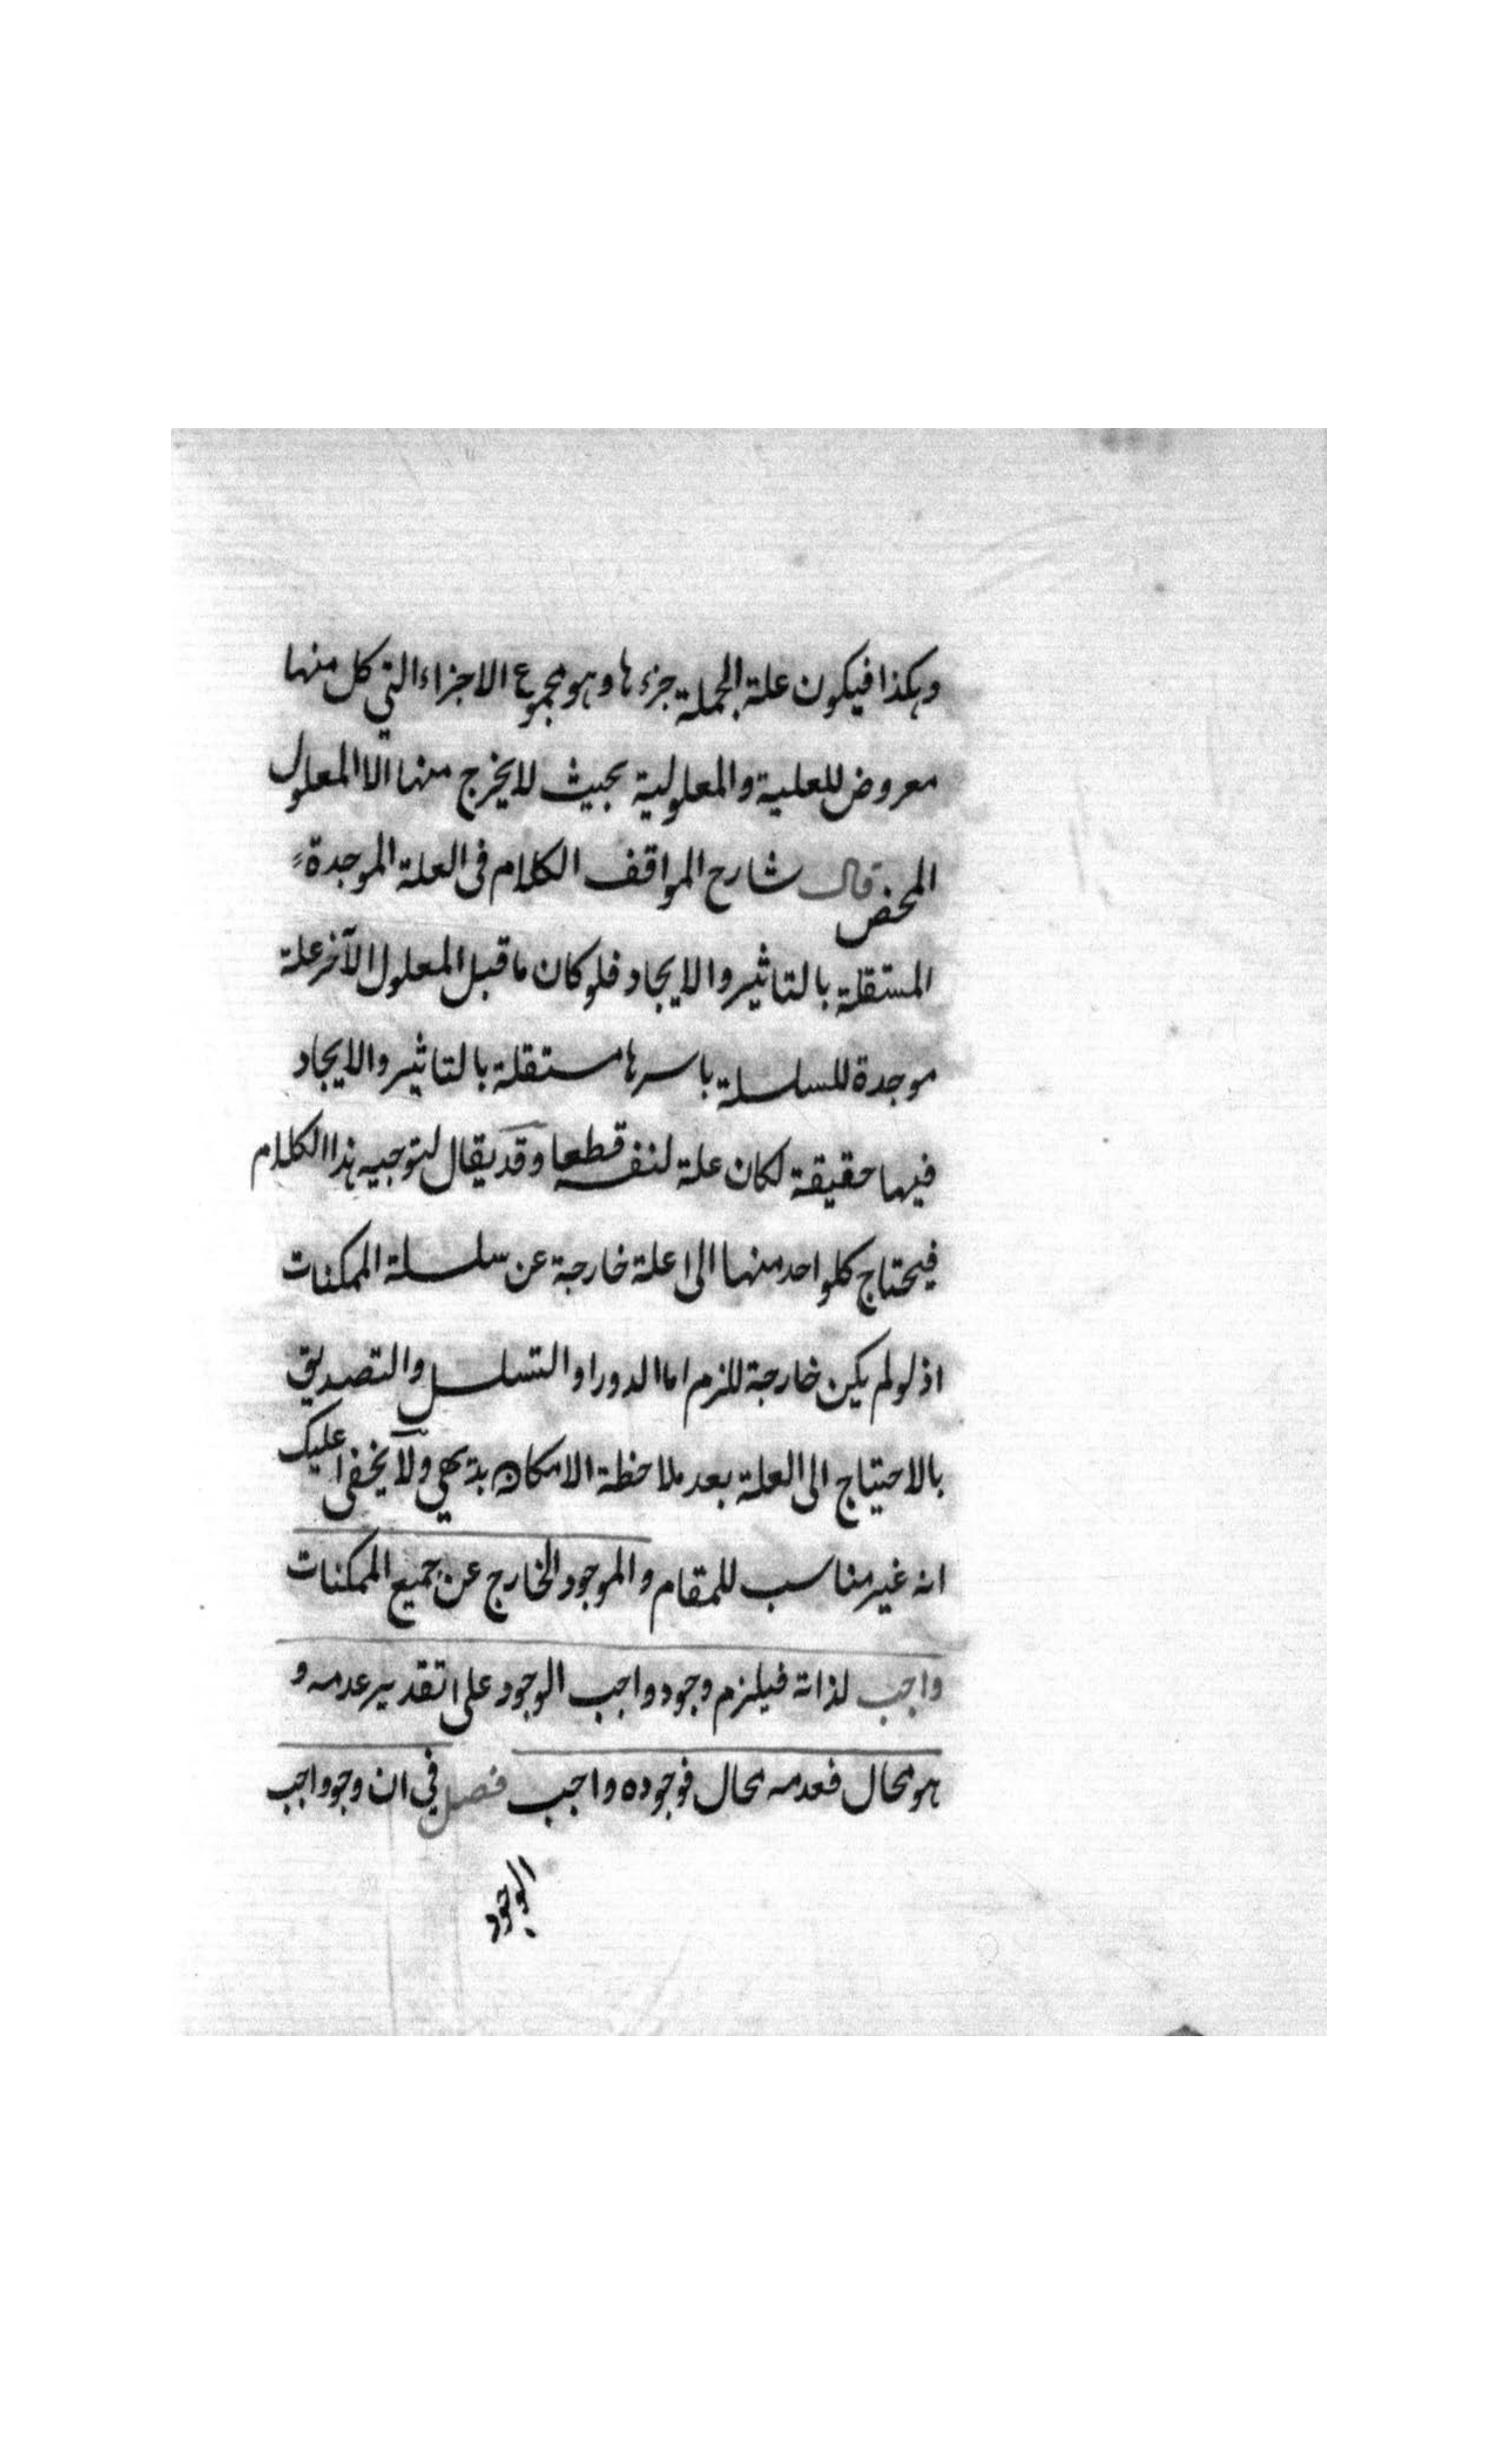 وهكذا فيكون علة الجملة جزءها وهو مجموع الاجزاء التي كل منها
معروض للعلية والمعلولية بحيث لا يخرج منها الا المعلول
المحض قال شارح المواقف الكلام في العلة الموجدة
المستقلة بالتاثير والايجاد فلو كان ما قبل المعلول الآخر علة
موجدة للسلسلة باسرها مستقلة بالتاثير والايجاد
فيها حقيقة لكان علة لنفسه قطعا وقد يقال لتوجيه هذا الكلام
فيحتاج كلواحد منها الى علة خارجة عن سلسلة الممكنات
اذ لو لم يكن خارجة للزم اما الدور او التسلسل والتصديق
بالاحتياج الى العلة بعد ملاحظة الامكان بديهي ولا يخفى عليك
انه غير مناسب للمقام والموجود الخارج عن جميع الممكنات
واجب لذاته فيلزم وجود واجب الوجود على تقدير عدمه و
هو محال فعدمه محال فوجوده واجب فصل في ان وجود واجب
الوجود